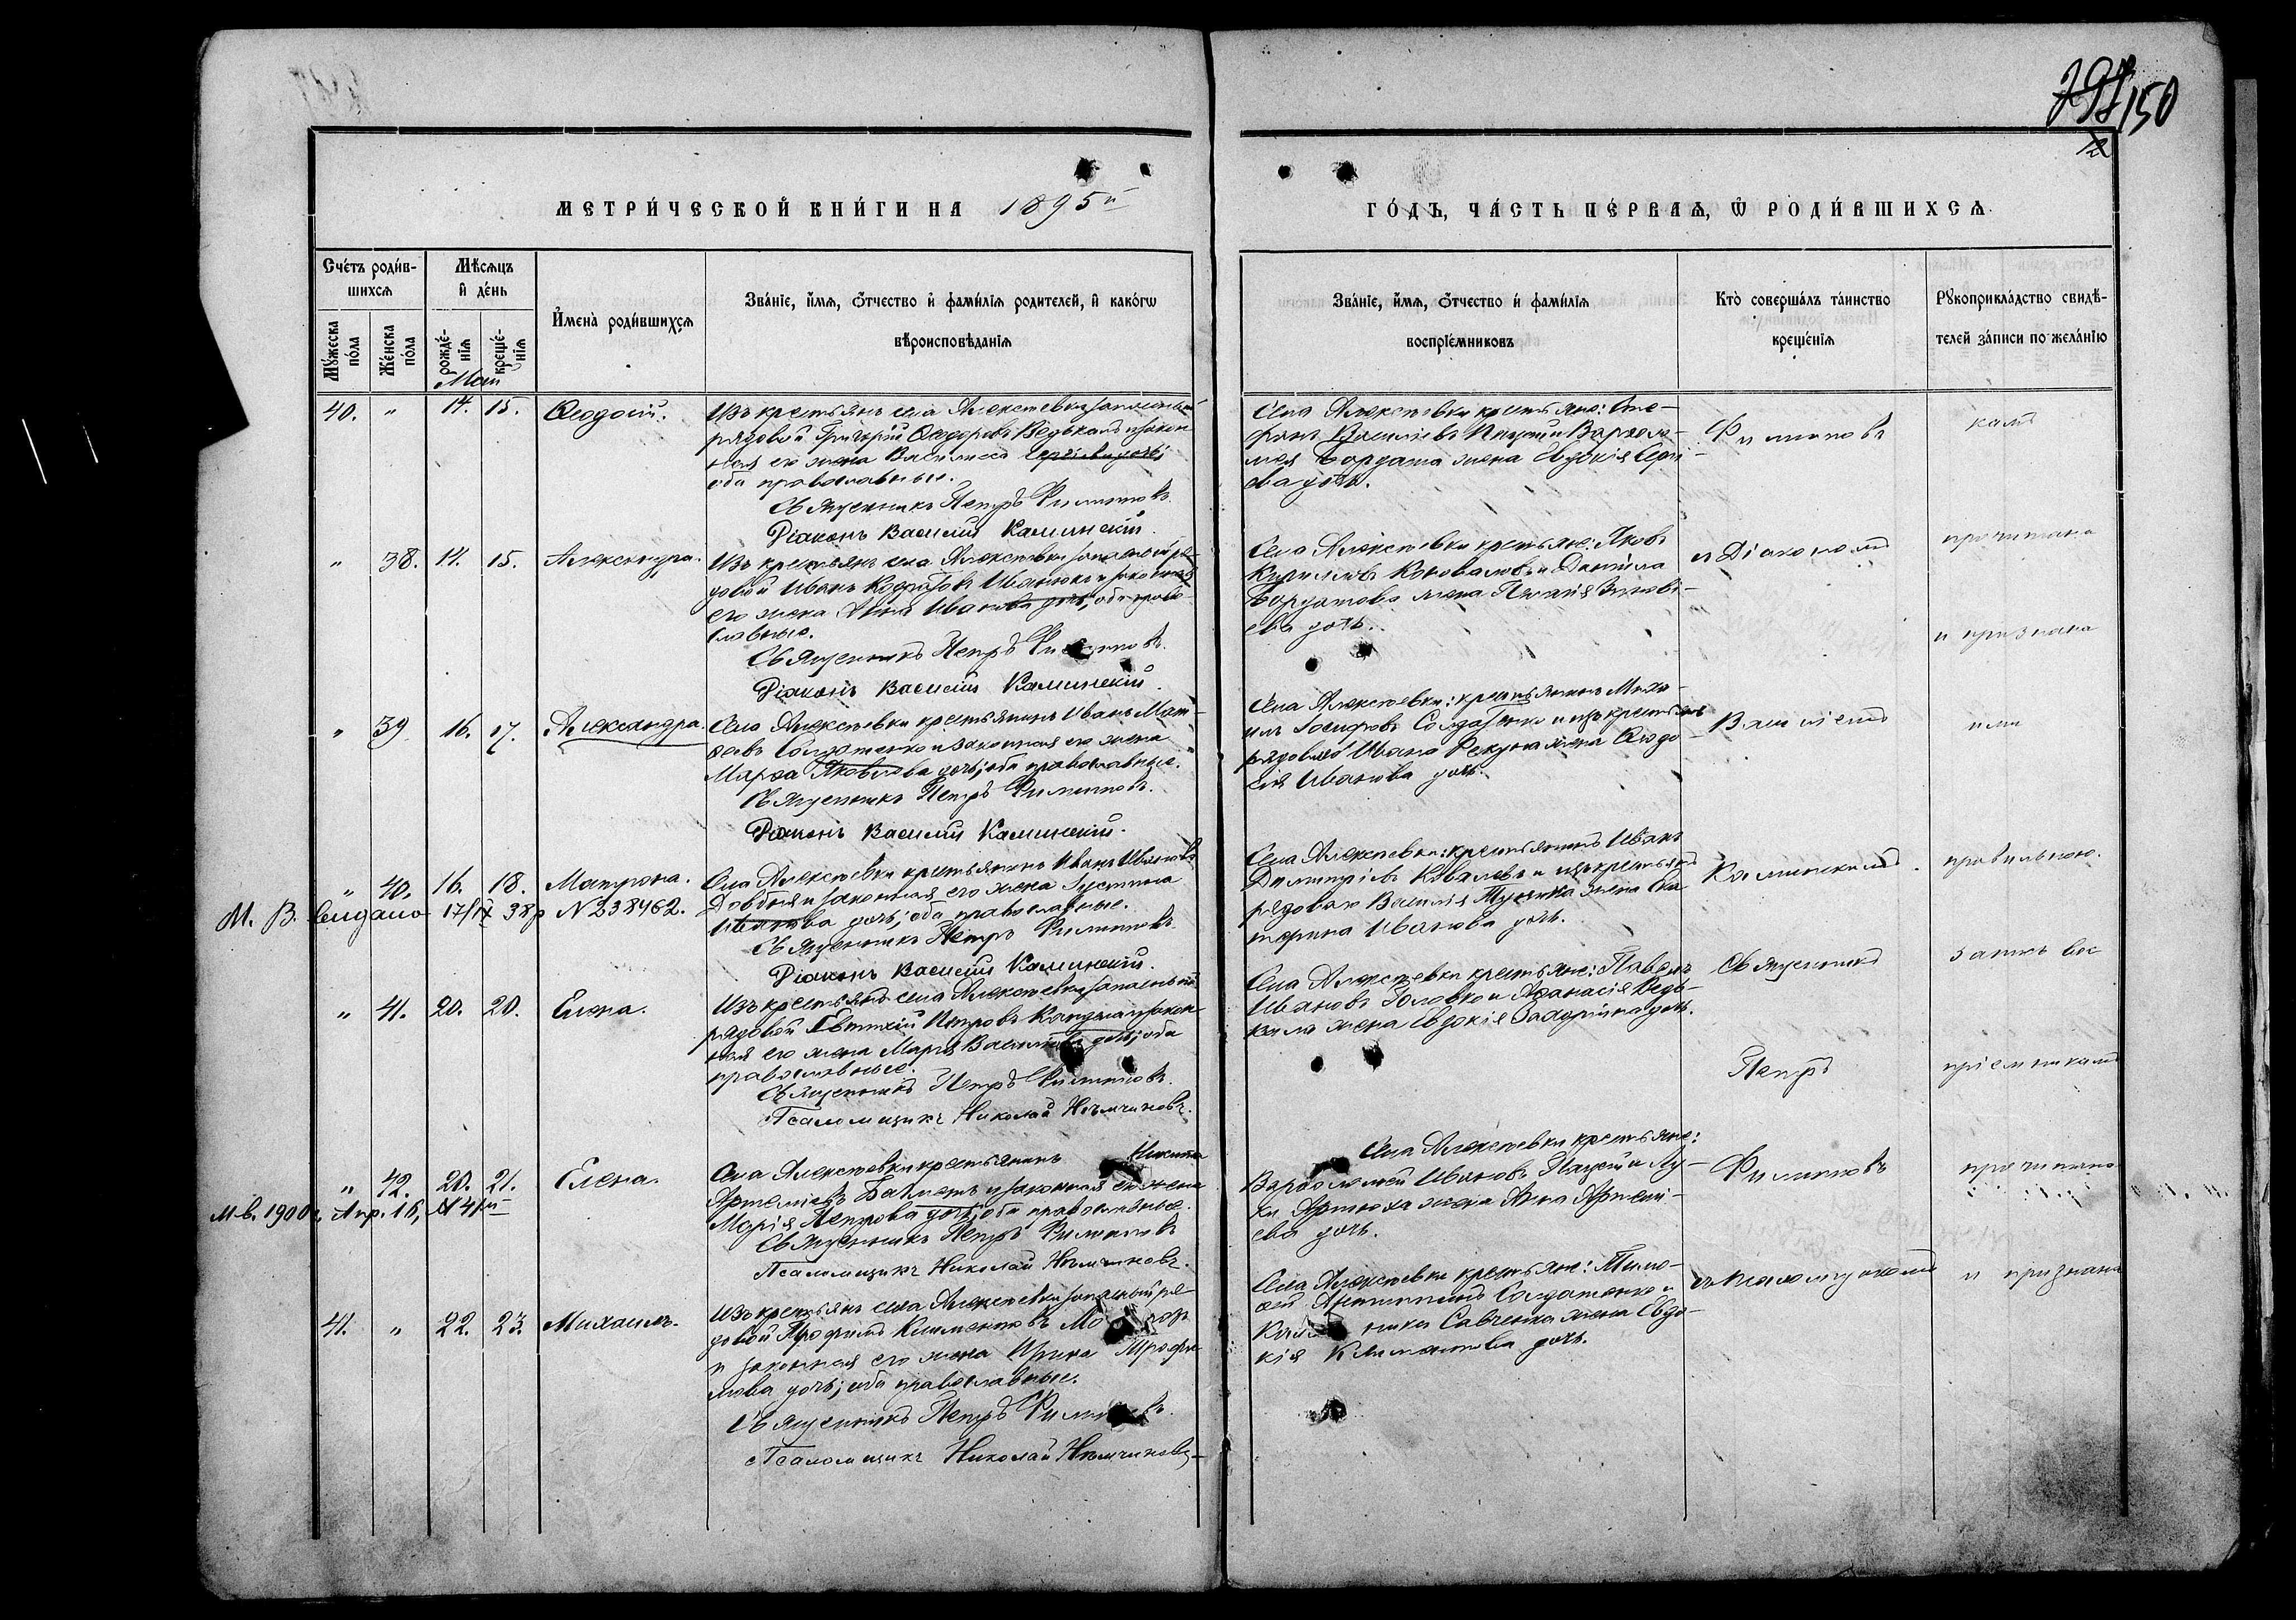 150
МЕТРИ́ЧЕСКОЙ КНИ́ГИ НА 1895й
ГО́ДЪ, ЧА́СТЬ ПЕ́РВАѦ, Ѡ РОДИ́ВШИХСѦ
Сче́тъ роди́в-
шихсѧ
Мѣсѧцъ
и̂ де́нь
Мꙋ́жеска по́ла
Же́нска по́ла
рожде́-
нїѧ
креще́-
нїѧ
И҆мена̀ роди́вшихсѧ
Зва́нїе, и҆́мѧ, ѻ҆́тчество и҆ фами́лїѧ родителей, и҆ како́гѡ
вѣроисповѣданїѧ
Зва́нїе, и҆́мѧ, ѻ҆́тчество и҆ фами́лїѧ
воспрїе́мниковъ
Кто̀ соверша́лъ та́инство
креще́нїѧ
Рꙋкоприкла́дство свидѣ-
телей за́писи по жела́нїю
Маи
40. " 14. 15. Ѳеодосій.
Изъ крестьянъ села Алексѣевки запасный
рядовой Григорій Ѳеодоровъ Вѣдькалъ и закон-
ная его жена Василисса Сергіева дочь;
оба православные.
Священникъ Петръ Филиповъ.
Діаконъ Василій Калинскій.
Села Алексѣевки крестьяне: Сте-
фанъ Василіевъ и Варѳоло-
мея жена Евдокія Сергі-
ева дочь.
Филиповъ
камъ
" 38. 14. 15. Александра.
Изъ крестьянъ села Алексѣевки запасный ря-
довой Иванъ и законная
его жена Анна Иванова дочь; оба право-
славные.
Священникъ Петръ Филиповъ.
Діаконъ Василій Калинскій.
Села Алексѣевки крестьяне: Яковъ
Кирилловъ Коноваловъ и Даніила
жена Пелагія Зиновi-
ева дочь.
и Діакономъ
прочитана
и признана
" 39 16. 17. Александра.
Села Алексѣевки крестьянинъ Иванъ
Солдатенко и законная его жена
Марѳа Яковлева дочь; оба православные.
Священникъ Петръ Филиповъ.
Діаконъ Василій Калинскій.
Села Алексѣевки: крестьянинъ Миха-
илъ Іосифовъ Солдатенко и изъ крестьянъ
рядоваго Ивана жена Ѳеодо-
сія Иванова дочь.
Василіемъ
ими
" 40. 16. 18. Матрона.
М. В. видано 17/IX 38р N 238462.
Села Алексѣевки крестьянинъ Иванъ Ивановъ
Довбня и законная его жена Іустина
Иванова дочь; оба православные.
Священникъ Петръ Филиповъ
Діаконъ Василій Калинскій.
Села Алексѣевки: крестьянинъ Иванъ
Димитріевъ Ковалевъ и изъ крестьянъ
рядоваго Василія жена Ека-
терина Иванова дочь.
Калинскимъ.
правильною.
" 41. 20. 20. Елена.
Изъ крестьянъ села Алексѣевки запасный
рядовой Евтихій Петровъ и закон-
ная его жена Марія Василіева дочь; оба
православные.
Священникъ Петръ Филиповъ.
Псаломщикъ Николай Нѣмчиновъ.
Села Алексѣевки крестьяне: Павелъ
Ивановъ Головко и Аѳанасія Вѣдь-
кала жена Евдокія Захаріина дочь.
Священникъ
Петръ
запись вос
пріемникамъ
" 42. 20. 21. Елена.
М.в. 1900 г. Апр. 18, N 41й
Села Алексѣевки крестьянинъ Никита
Артеміевъ и законная его жена
Марія Петрова дочь; оба православные.
Священникъ Петръ Филиповъ
Псаломщикъ Николай Нѣмчиновъ.
Села Алексѣевки крестьяне:
Варѳоломей Ивановъ и Лу-
ки жена Анна Артемі-
ева дочь.
Филиповъ
прочитана
41. " 22. 23. Михаилъ.
Изъ крестьянъ села Алексѣевки запасный ря-
довой Трофимъ Климентовъ
и законная его жена Ирина Трофи-
мова дочь; оба православные.
Священникъ Петръ Филиповъ.
Псаломщикъ Николай Нѣмчиновъ
Села Алексѣевки крестьяне: Тимо-
ѳей Солдатенко и
Савченка жена Евдо-
кія Климентова дочь.
съ псаломщикомъ
и признана